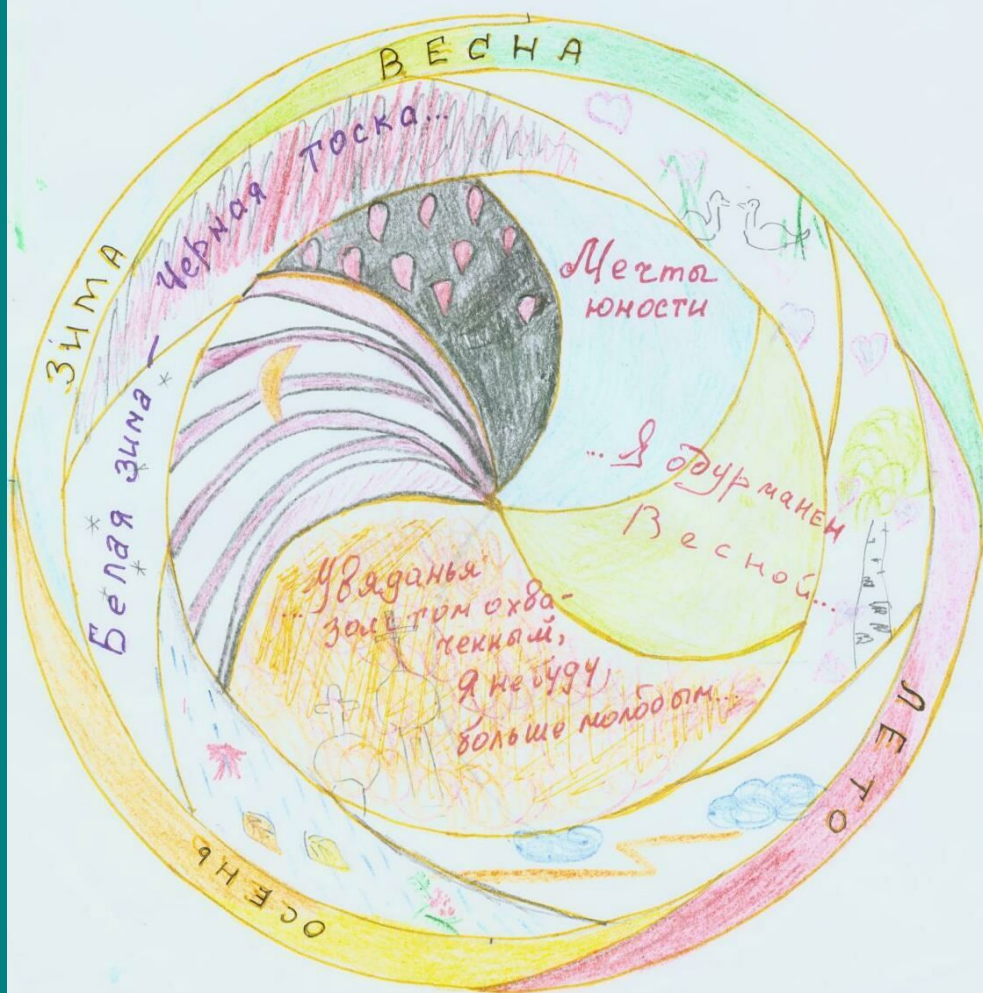 ВЕСНА
ЗИМА
Черная тоска...
Белая зима —
Мечты
юности
...Я одурманен
Весной...
...Увяданья
золотом охва-
ченный,
Я не буду
больше молодым...
ЛЕТО
ОСЕНЬ